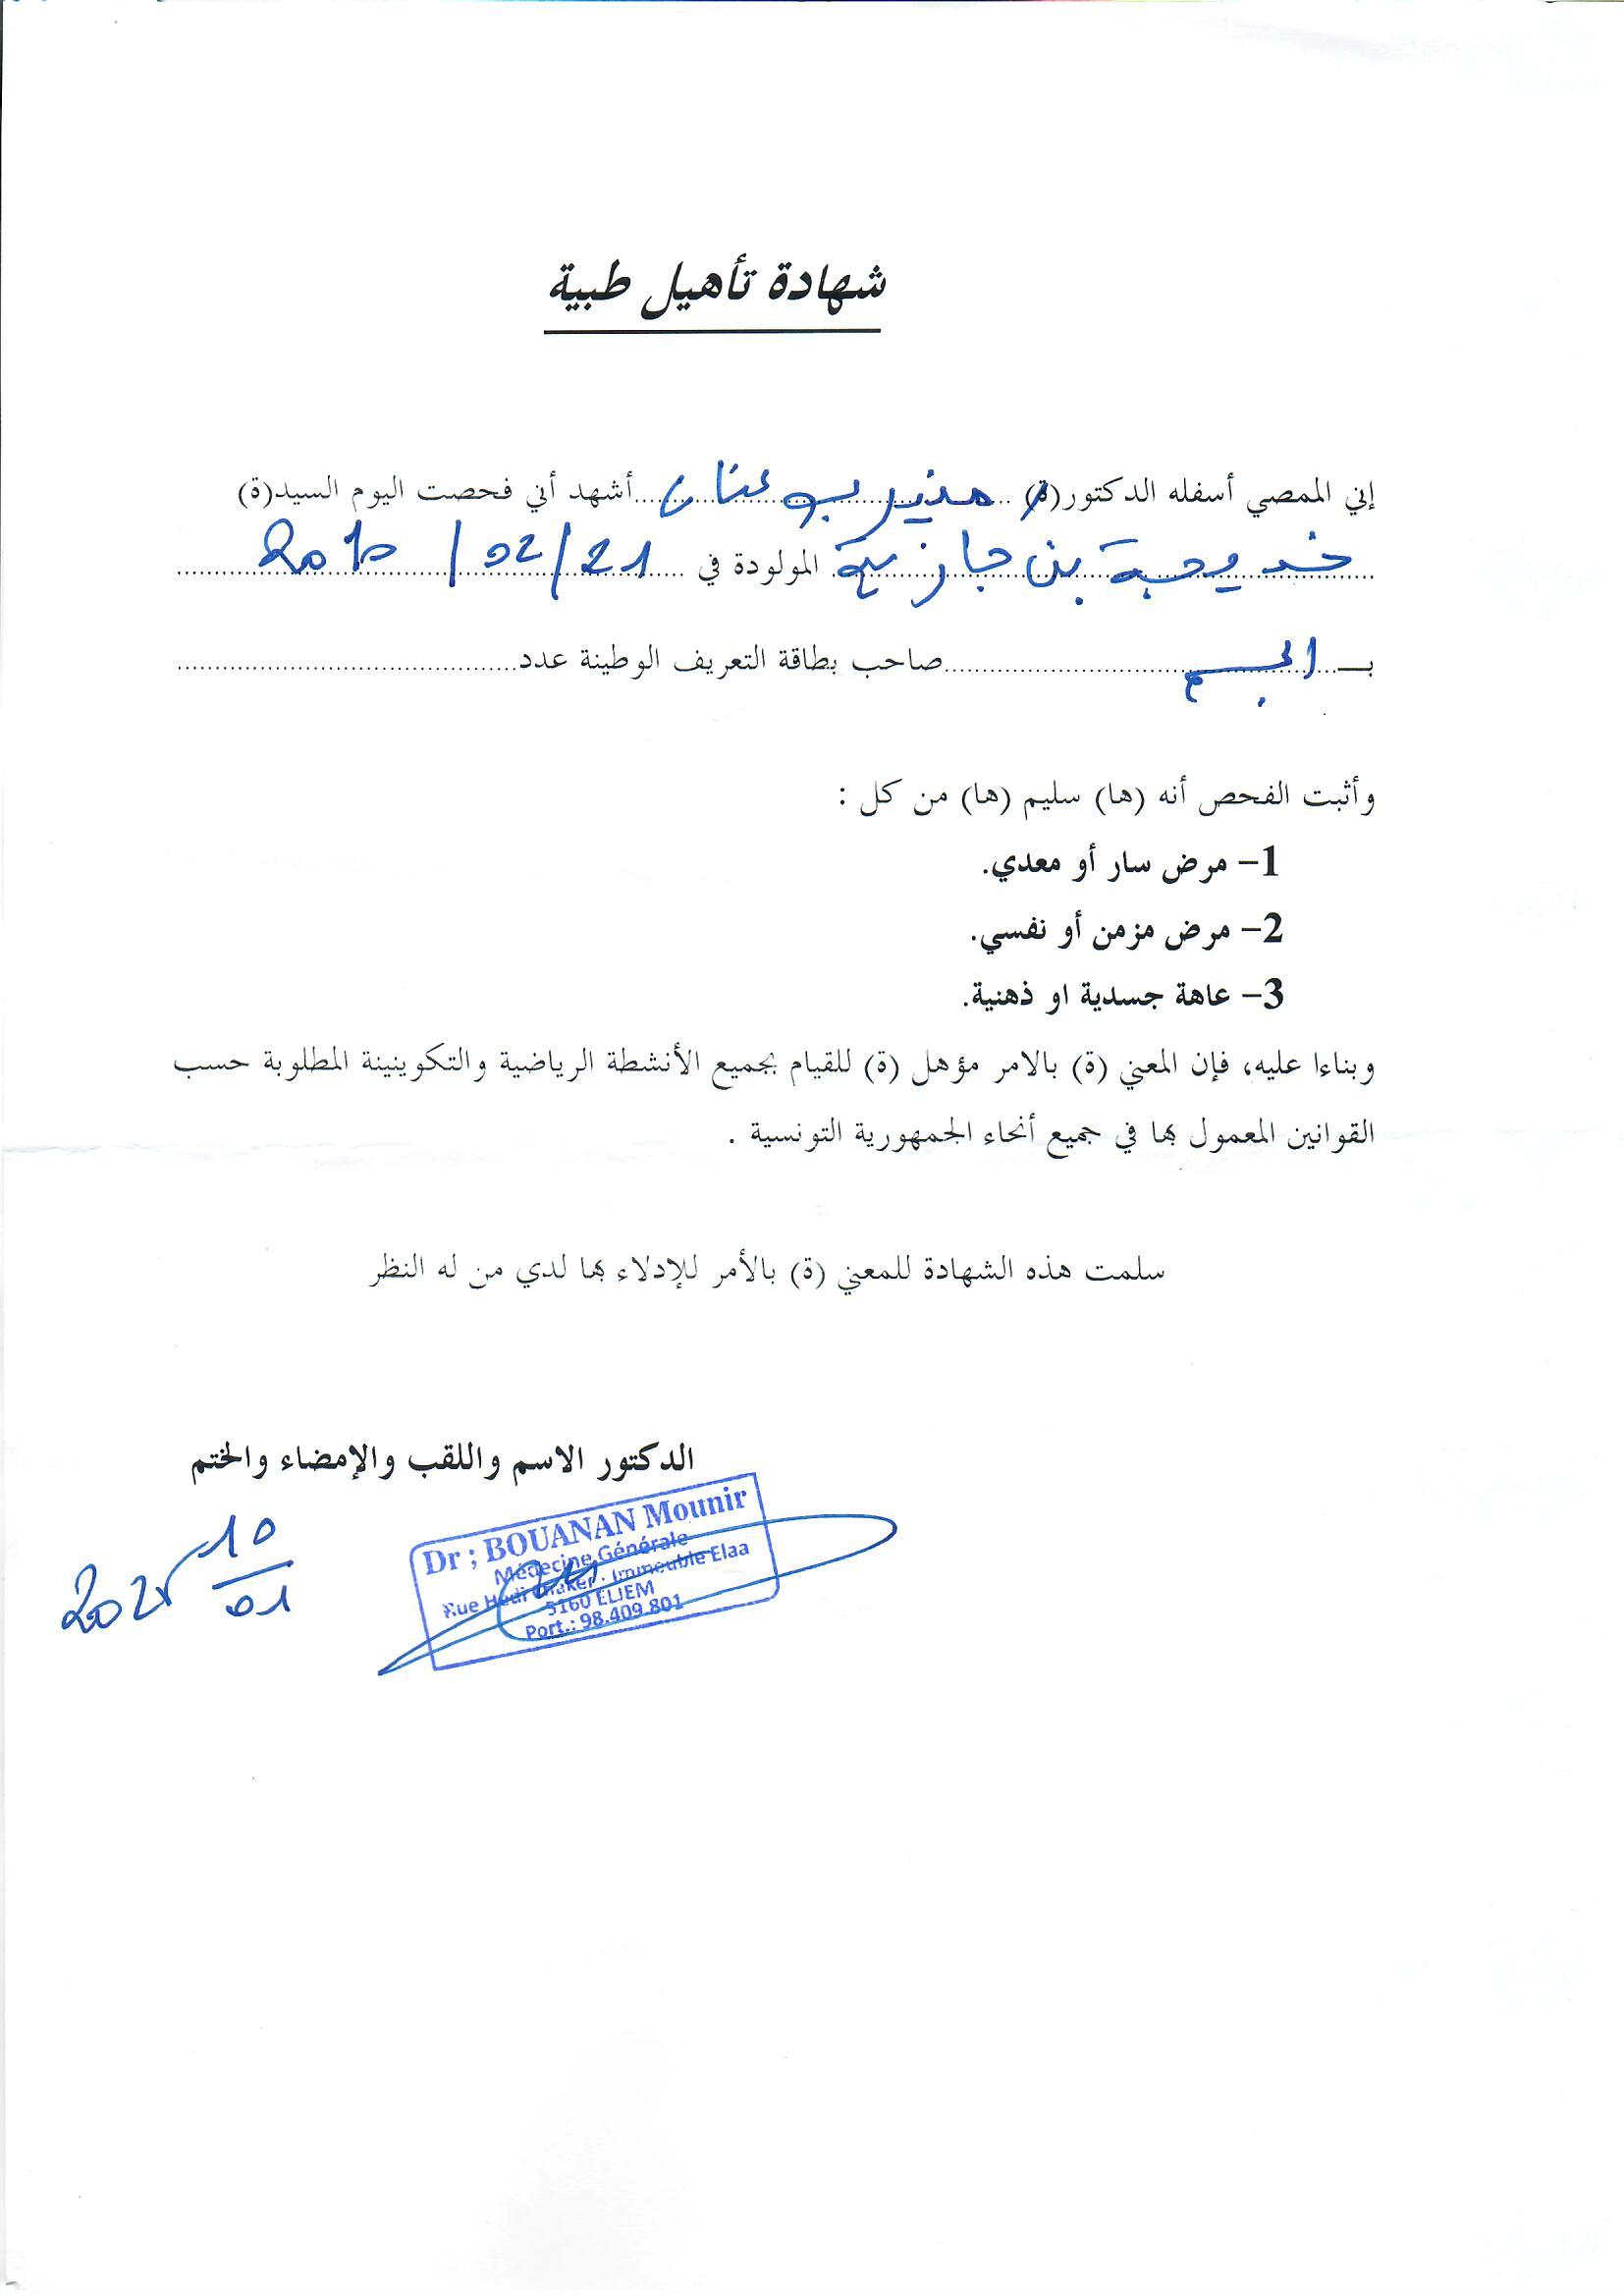 شهادة تأهيل طبية
إني الممضي أسفله الدكتور(ة) منير بوعنان أشهد أني فحصت اليوم السيد(ة)
خديجة بن جازية المولودة في 21/02/2010
بـ الجم صاحب بطاقة التعريف الوطينة عدد
وأثبت الفحص أنه (ها) سليم (ها) من كل :
1- مرض سار أو معدي.
2- مرض مزمن أو نفسي.
3- عاهة جسدية او ذهنية.
وبناءا عليه، فإن المعني (ة) بالامر مؤهل (ة) للقيام بجميع الأنشطة الرياضية والتكوينينة المطلوبة حسب
القوانين المعمول بها في جميع أنحاء الجمهورية التونسية .
سلمت هذه الشهادة للمعني (ة) بالأمر للإدلاء بها لدي من له النظر
الدكتور الاسم واللقب والإمضاء والختم
Dr ; BOUANAN Mounir
Médecine Générale
Rue Hédi Chaker . Immeuble Elaa
5160 ELJEM
Port.: 98.409.801
10
01
2025